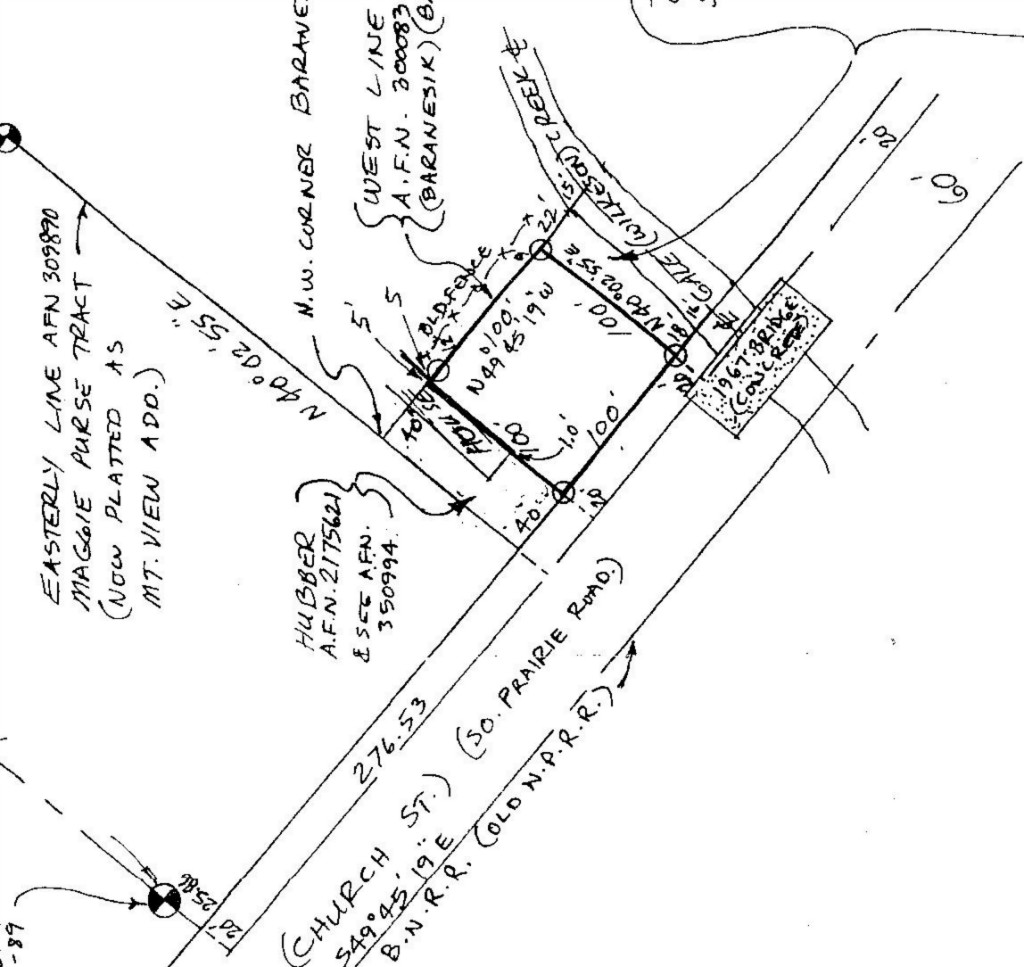 EASTERLY LINE AFN 309890
MAGGIE PURSE TRACT
(NOW PLATTED AS
MT. VIEW ADD.)
N40°02'55"E
N.W. CORNER BARANE
{WEST LINE
A.F.N. 300083
(BARANESIK) (BA
HUBBER
A.F.N. 2175621
& SEE AFN.
350994.
5'
5
OLD FENCE
x
x
x
40'
HOUSE
100'
N49°45'19"W
100'
1.0'
100'
100'
N40°02'55"E
22'
15'
GALE (WILKESON) CREEK ℄
18'
16'
20'
1967 BRIDGE
(CONCRETE)
40'
20'
60'
276.53
25.86
20'
(CHURCH ST.) (SO. PRAIRIE ROAD)
S49°45'19"E
B.N.R.R. (OLD N.P.R.R.)
-89